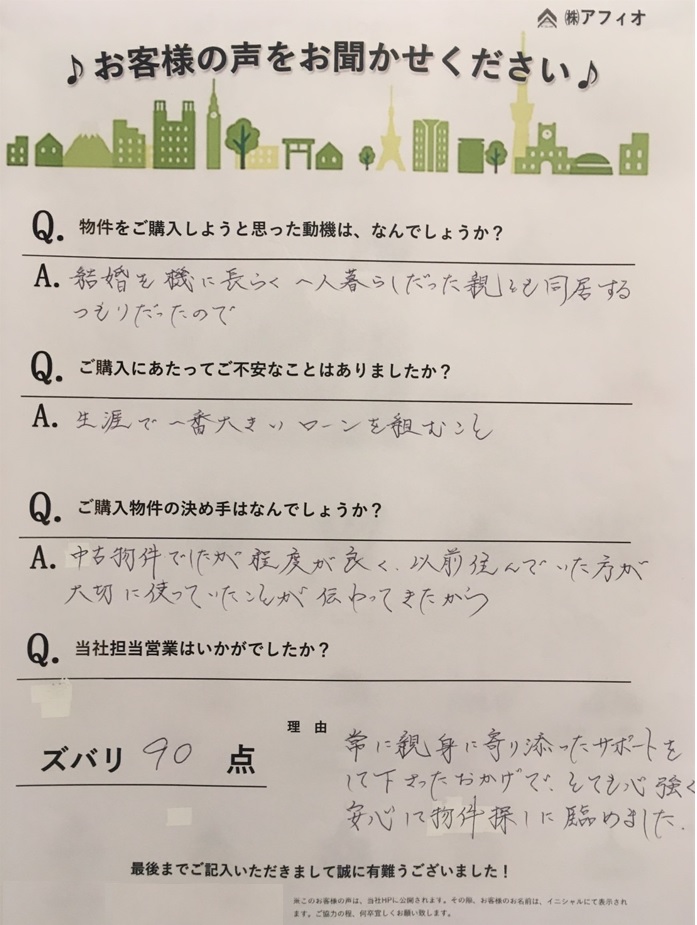 ㈱アフィオ
♪お客様の声をお聞かせください♪
Q. 物件をご購入しようと思った動機は、なんでしょうか？
A. 結婚を機に長らく一人暮らしだった親とも同居する
つもりだったので
Q. ご購入にあたってご不安なことはありましたか？
A. 生涯で一番大きいローンを組むこと
Q. ご購入物件の決め手はなんでしょうか？
A. 中古物件でしたが程度が良く、以前住んでいた方が
大切に使っていたことが伝わってきたから
Q. 当社担当営業はいかがでしたか？
ズバリ 90 点
理 由
常に親身に寄り添ったサポートを
して下さったおかげで、とても心強く
安心して物件探しに臨めました。
最後までご記入いただきまして誠に有難うございました！
※このお客様の声は、当社HPに公開されます。その際、お客様のお名前は、イニシャルにて表示され
ます。ご協力の程、何卒宜しくお願い致します。